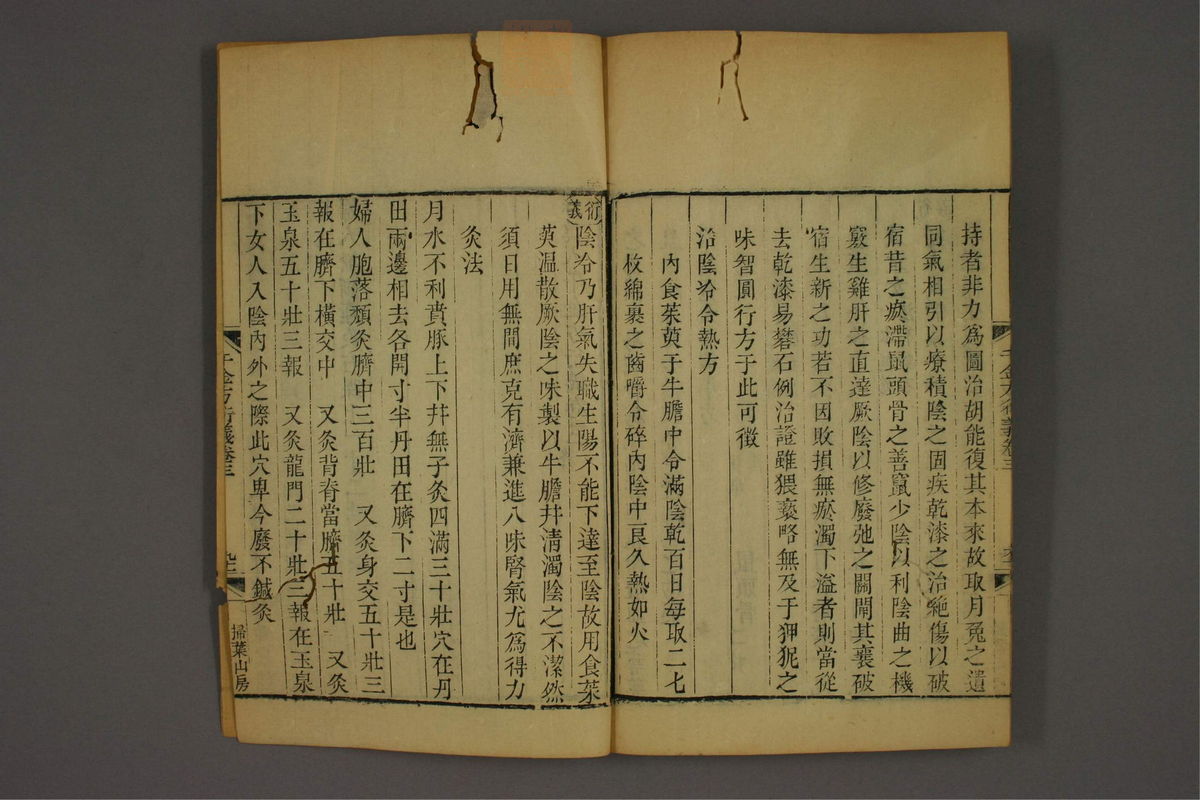 持者非力爲圖治胡能復其本來故取月兔之遺
同氣相引以療積陰之固疾乾漆之治絶傷以破
宿昔之瘀滯鼠頭骨之善竄少陰以利陰曲之機
竅生雞肝之直達厥陰以修廢弛之關閘其蘘破
宿生新之功若不因敗損無瘀濁下溢者則當從
去乾漆易礬石例治證雖猥褻略無及于狎狔之
味智圓行方于此可徵
治陰冷令熱方
內食茱萸于牛膽中令滿陰乾百日每取二七
枚綿裹之齒嚼令碎內陰中良久熱如火
衍義
陰冷乃肝氣失職生陽不能下達至陰故用食茱
萸温散厥陰之味製以牛膽井清濁陰之不潔然
須日用無間庶克有濟兼進八味腎氣尤爲得力
灸法
月水不利賁豚上下井無子灸四滿三十壯穴在丹
田兩邊相去各開寸半丹田在臍下二寸是也
婦人胞落頹灸臍中三百壯 又灸身交五十壯三
報在臍下橫交中 又灸背脊當臍五十壯 又灸
玉泉五十壯三報 又灸龍門二十壯三報在玉泉
下女人入陰內外之際此穴卑今廢不鍼灸
千金方衍義卷三
九三
掃葉山房